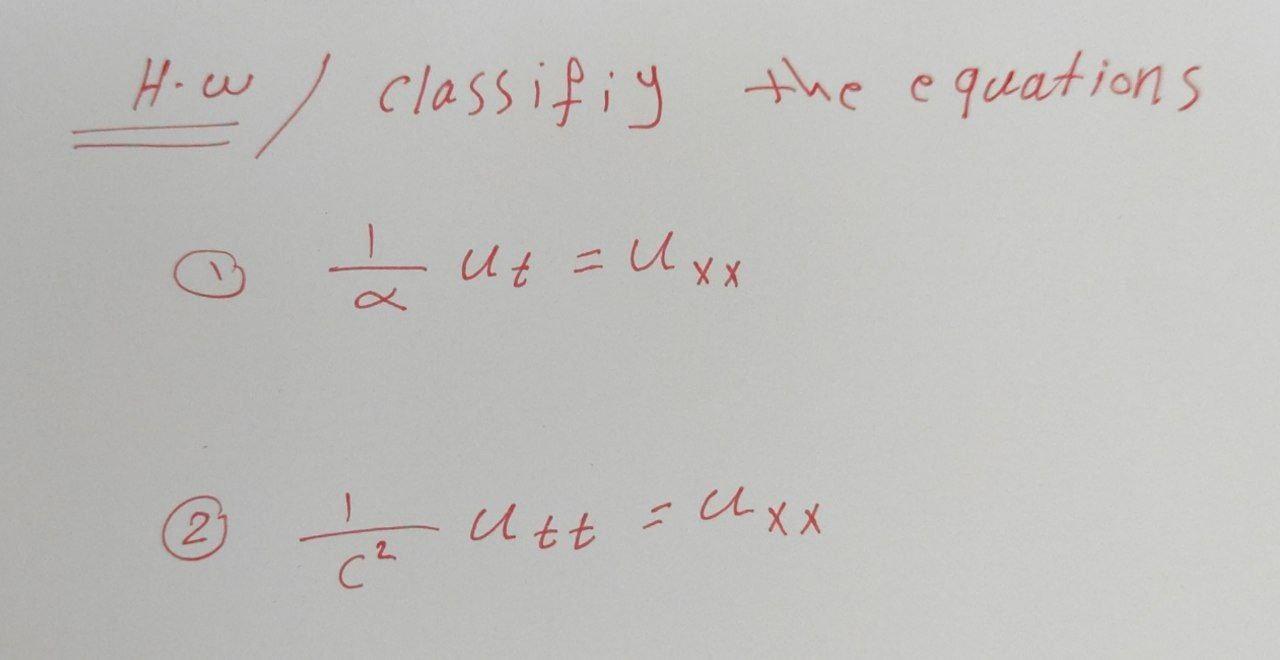 H.w / classifiy the equations
① 1/α u_t = u_xx
② 1/c² u_tt = u_xx